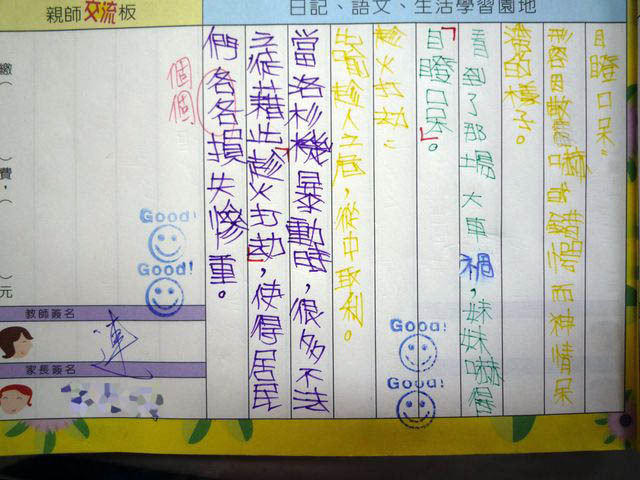 日記、語文、生活學習園地
目瞪口呆：
形容因驚嚇或而神情呆
滯的樣子。
看到了那場大車禍，妹妹嚇得
「目瞪口呆」。
趁火打劫：
比喻趁人之危，從中取利。
當洛杉機暴動時，很多不法
之徒藉此「趁火打劫」，使得居民
們各各損失慘重。
個個
Good!
Good!
Good!
Good!
親師交流板
繳
費，
元
教師簽名
連
家長簽名